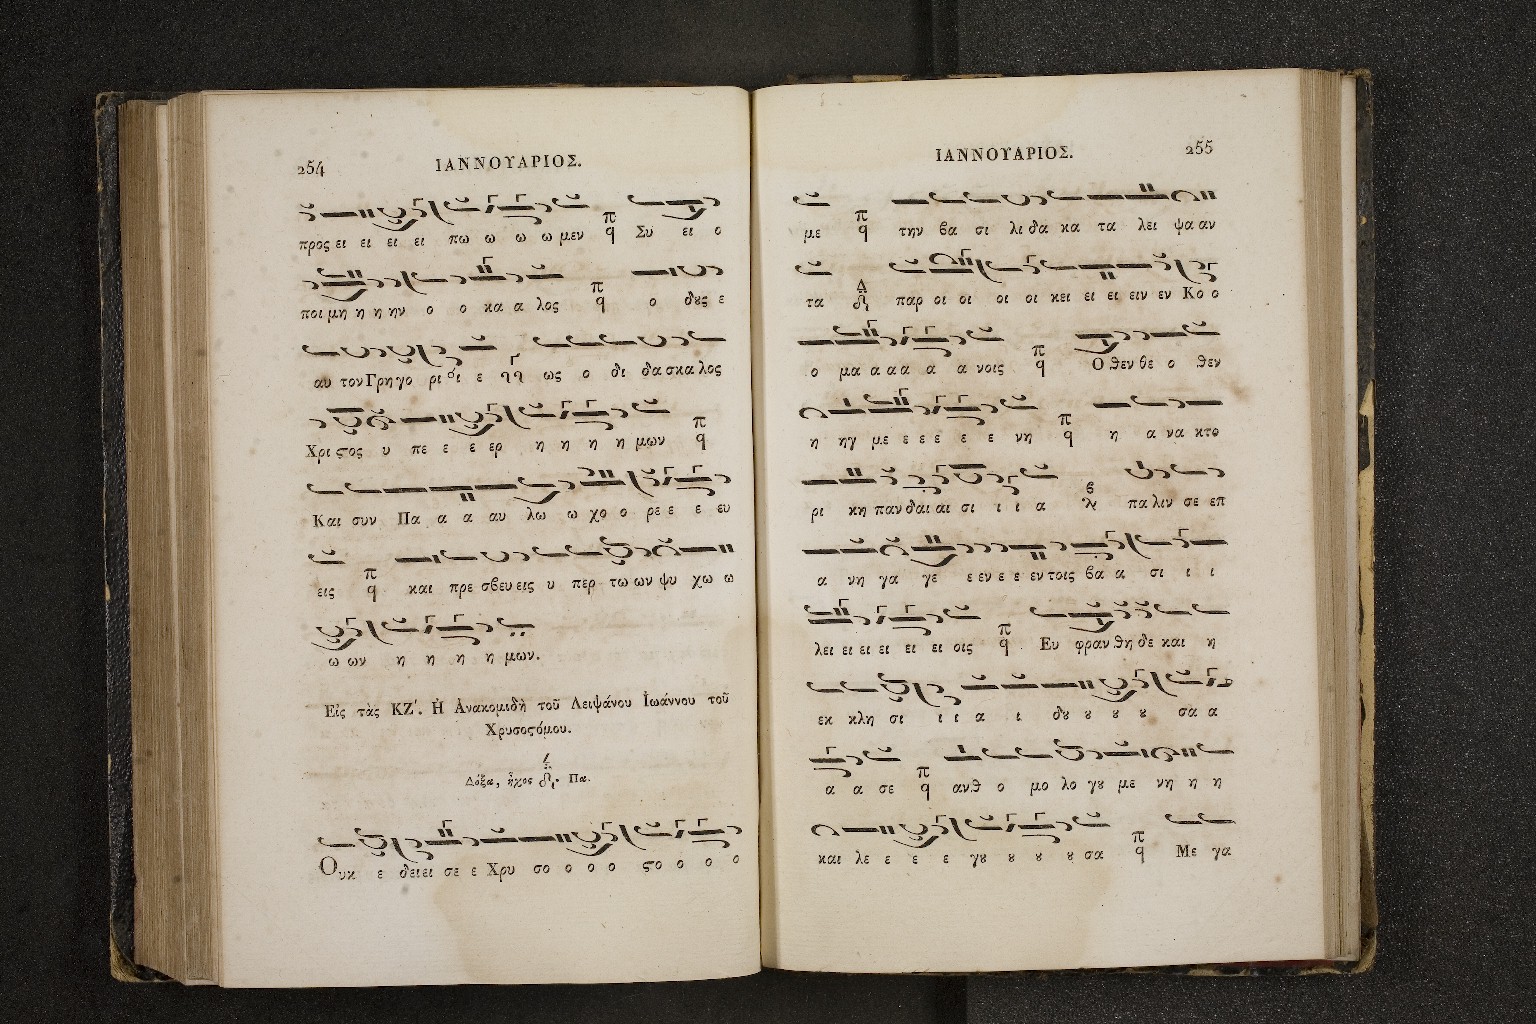 254
ΙΑΝΝΟΥΑΡΙΟΣ.
προς ει ει ει ει πω ω ω ω μεν π q Συ ει ο
ποι μη η η ην ο ο κα α λος π q ο δȣς ε
αυ τον Γρη γο ρι ι ε ως ο δι δα σκα λος
Χρι ϛος υ πε ε ε ερ η η η η μων π q
Και συν Πα α α αυ λω ω χο ο ρε ε ε ευ
εις π q και πρε σβευ εις υ περ τω ων ψυ χω ω
ω ων η η η η μων.
Εἰς τὰς ΚΖ'. Ἡ Ἀνακομιδὴ τοῦ Λειψάνου Ἰωάννου τοῦ
Χρυσοϛόμου.
Δόξα, ἦχος Πα.
Ουκ ε δει ει σε ε Χρυ σο ο ο ο ϛο ο ο ο
ΙΑΝΝΟΥΑΡΙΟΣ.
255
με π q την βα σι λι δα κα τα λει ψα αν
τα Δ παρ οι οι οι οι κει ει ει ειν εν Κο ο
ο μα α α α α α νοις π q Ο θεν θε ο θεν
η ηγ με ε ε ε ε ε νη π q η α να κτο
ρι κη παν δαι αι σι ι ι α παλιν σε επ
α νη γα γε ε εν ε ε εν τοις βα α σι ι ι
λει ει ει ει ει ει οις π q Ευ φραν θη δε και η
εκ κλη σι ι ι α ι δȣ ȣ ȣ ȣ σα α
α α σε π q ανθ ο μο λο γȣ με νη η η
και λε ε ε ε γȣ ȣ ȣ ȣ σα π q Με γα